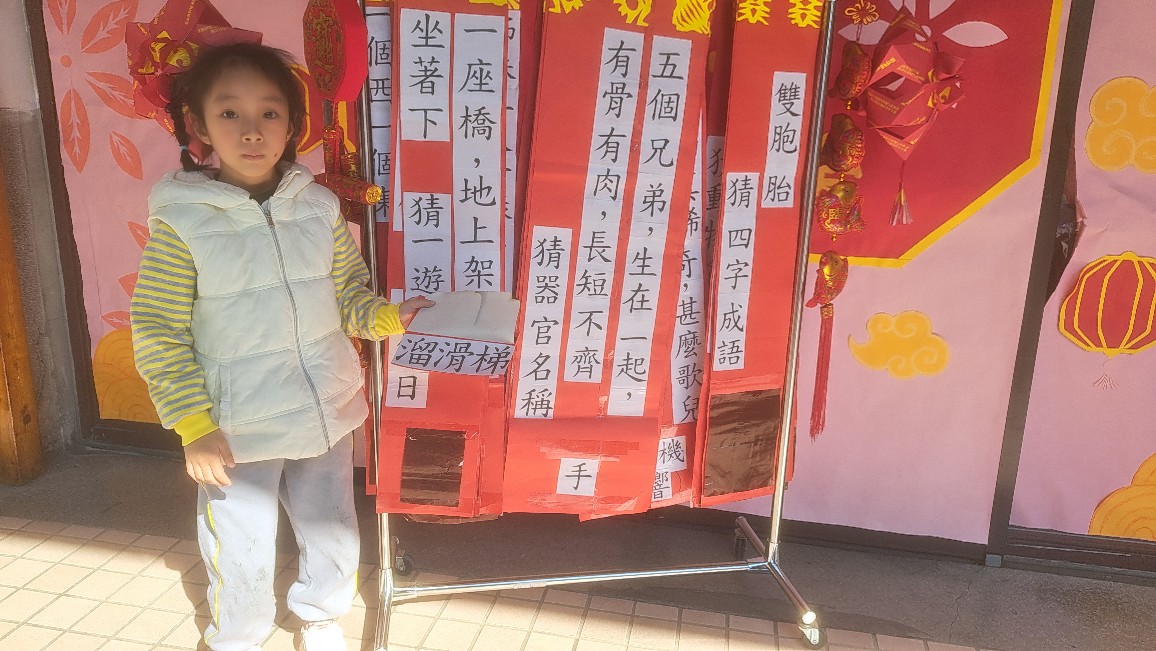 雙胞胎
猜四字成語
奇，甚麼歌兒
機
響
五個兄弟，生在一起，
有骨有肉，長短不齊
猜器官名稱
手
一座橋，地上架
坐著下
猜一遊
溜滑梯
日
個西一個